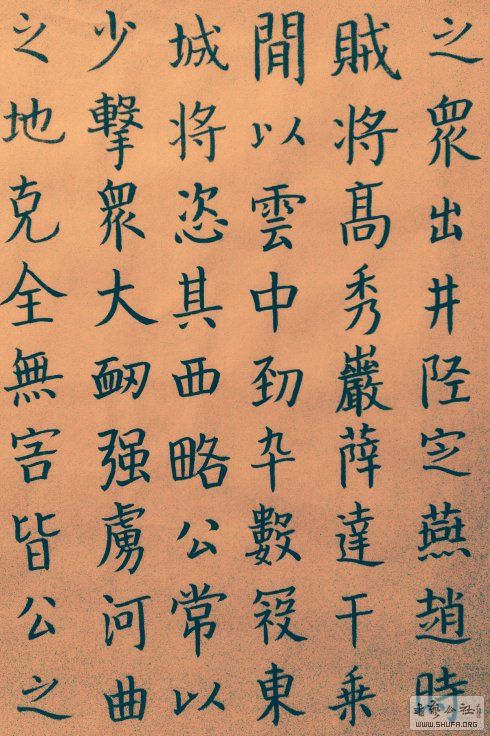 之眾出井陘定燕趙時
賊將髙秀巖薛達干乘
間以雲中勁卆數寇東
城將恣其西略公常以
少擊眾大衂强虜河曲
之地克全無害皆公之
WWW.SHUFA.ORG